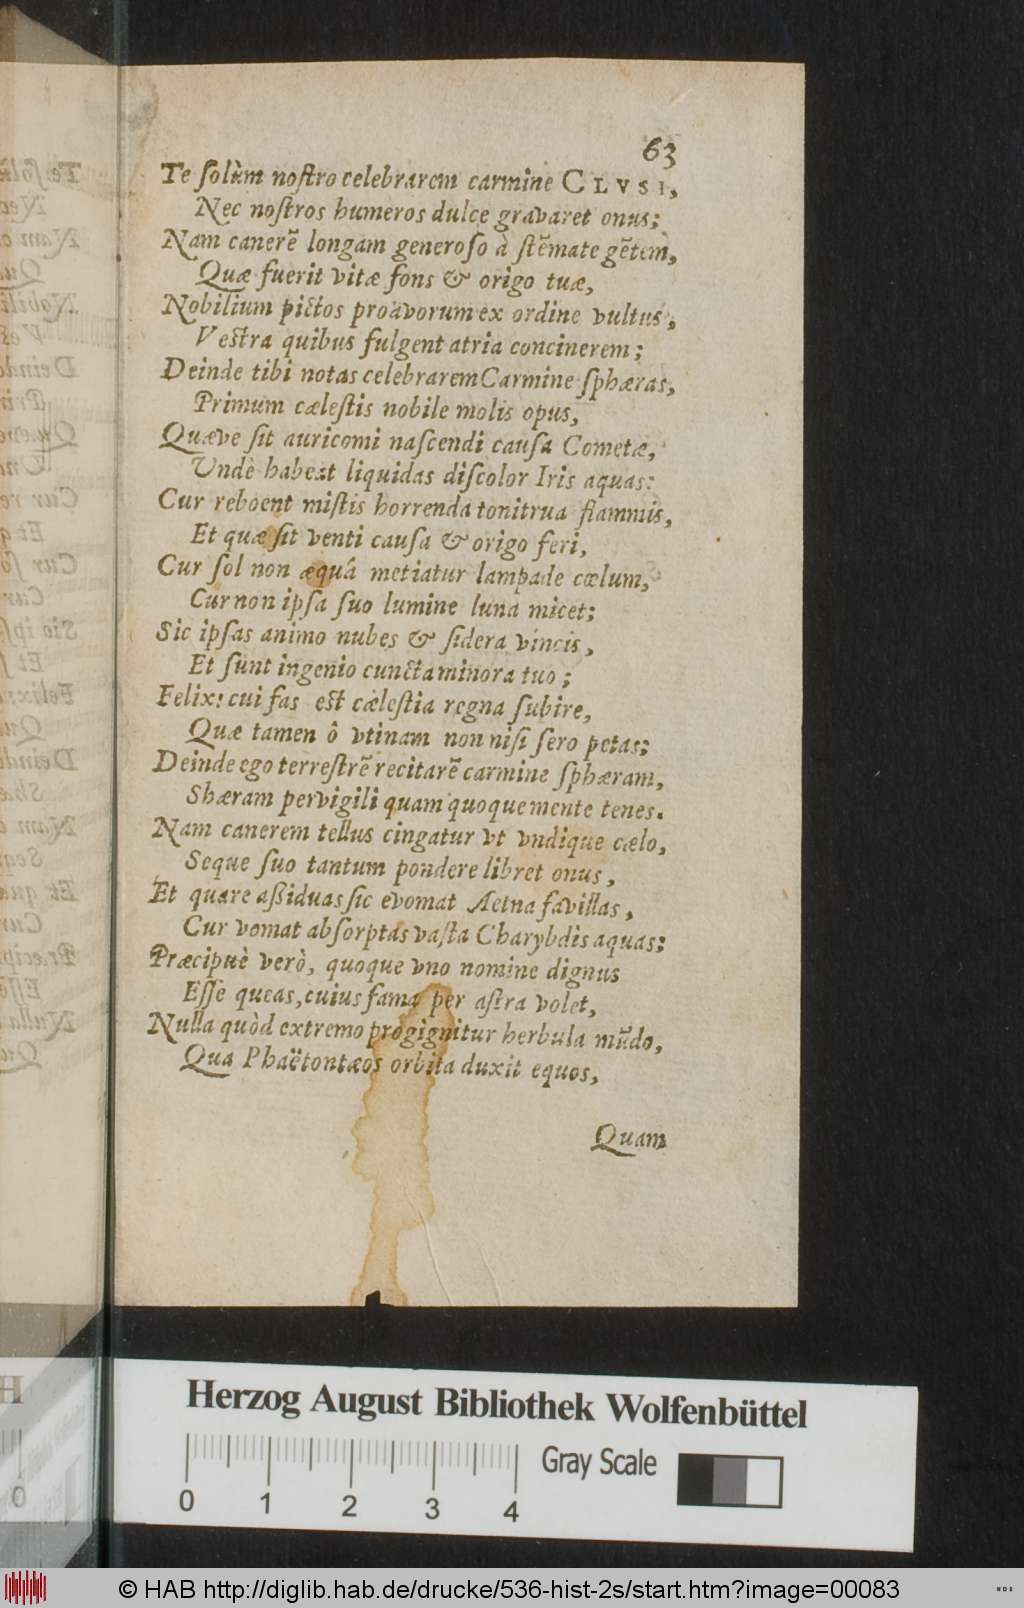 63
Te ſolùm noſtro celebrarem carmine CLVSI,
Nec noſtros humeros dulce gravaret onus;
Nam canerẽ longam generoſo à ſtẽmate gẽtem,
Quæ fuerit vitæ fons & origo tuæ,
Nobilium pictos proavorum ex ordine vultus,
Vestra quibus fulgent atria concinerem;
Deinde tibi notas celebrarem Carmine ſphæras,
Primum cæleſtis nobile molis opus,
Quæve ſit auricomi naſcendi cauſa Cometæ,
Undè habeat liquidas diſcolor Iris aquas:
Cur reboent miſtis horrenda tonitrua flammis,
Et quæ ſit venti cauſa & origo feri,
Cur ſol non æquâ metiatur lampade cœlum,
Cur non ipſa ſuo lumine luna micet;
Sic ipſas animo nubes & ſidera vincis,
Et ſunt ingenio cuncta minora tuo;
Felix: cui fas est cæleſtia regna ſubire,
Quæ tamen ô vtinam non niſi ſero petas;
Deinde ego terreſtrẽ recitarẽ carmine ſphæram,
Shæram pervigili quam quoque mente tenes.
Nam canerem tellus cingatur vt vndique cælo,
Seque ſuo tantum pondere libret onus,
Et quare aßiduas ſic evomat Aetna favillas,
Cur vomat abſorptas vaſta Charybdis aquas;
Præcipuè verò, quoque vno nomine dignus
Eſſe queas, cuius fama per aſtra volet,
Nulla quòd extremo progignitur herbula mũdo,
Qua Phaëtontæos orbita duxit equos,
Quam
Herzog August Bibliothek Wolfenbüttel
Gray Scale
0 1 2 3 4
© HAB http://diglib.hab.de/drucke/536-hist-2s/start.htm?image=00083